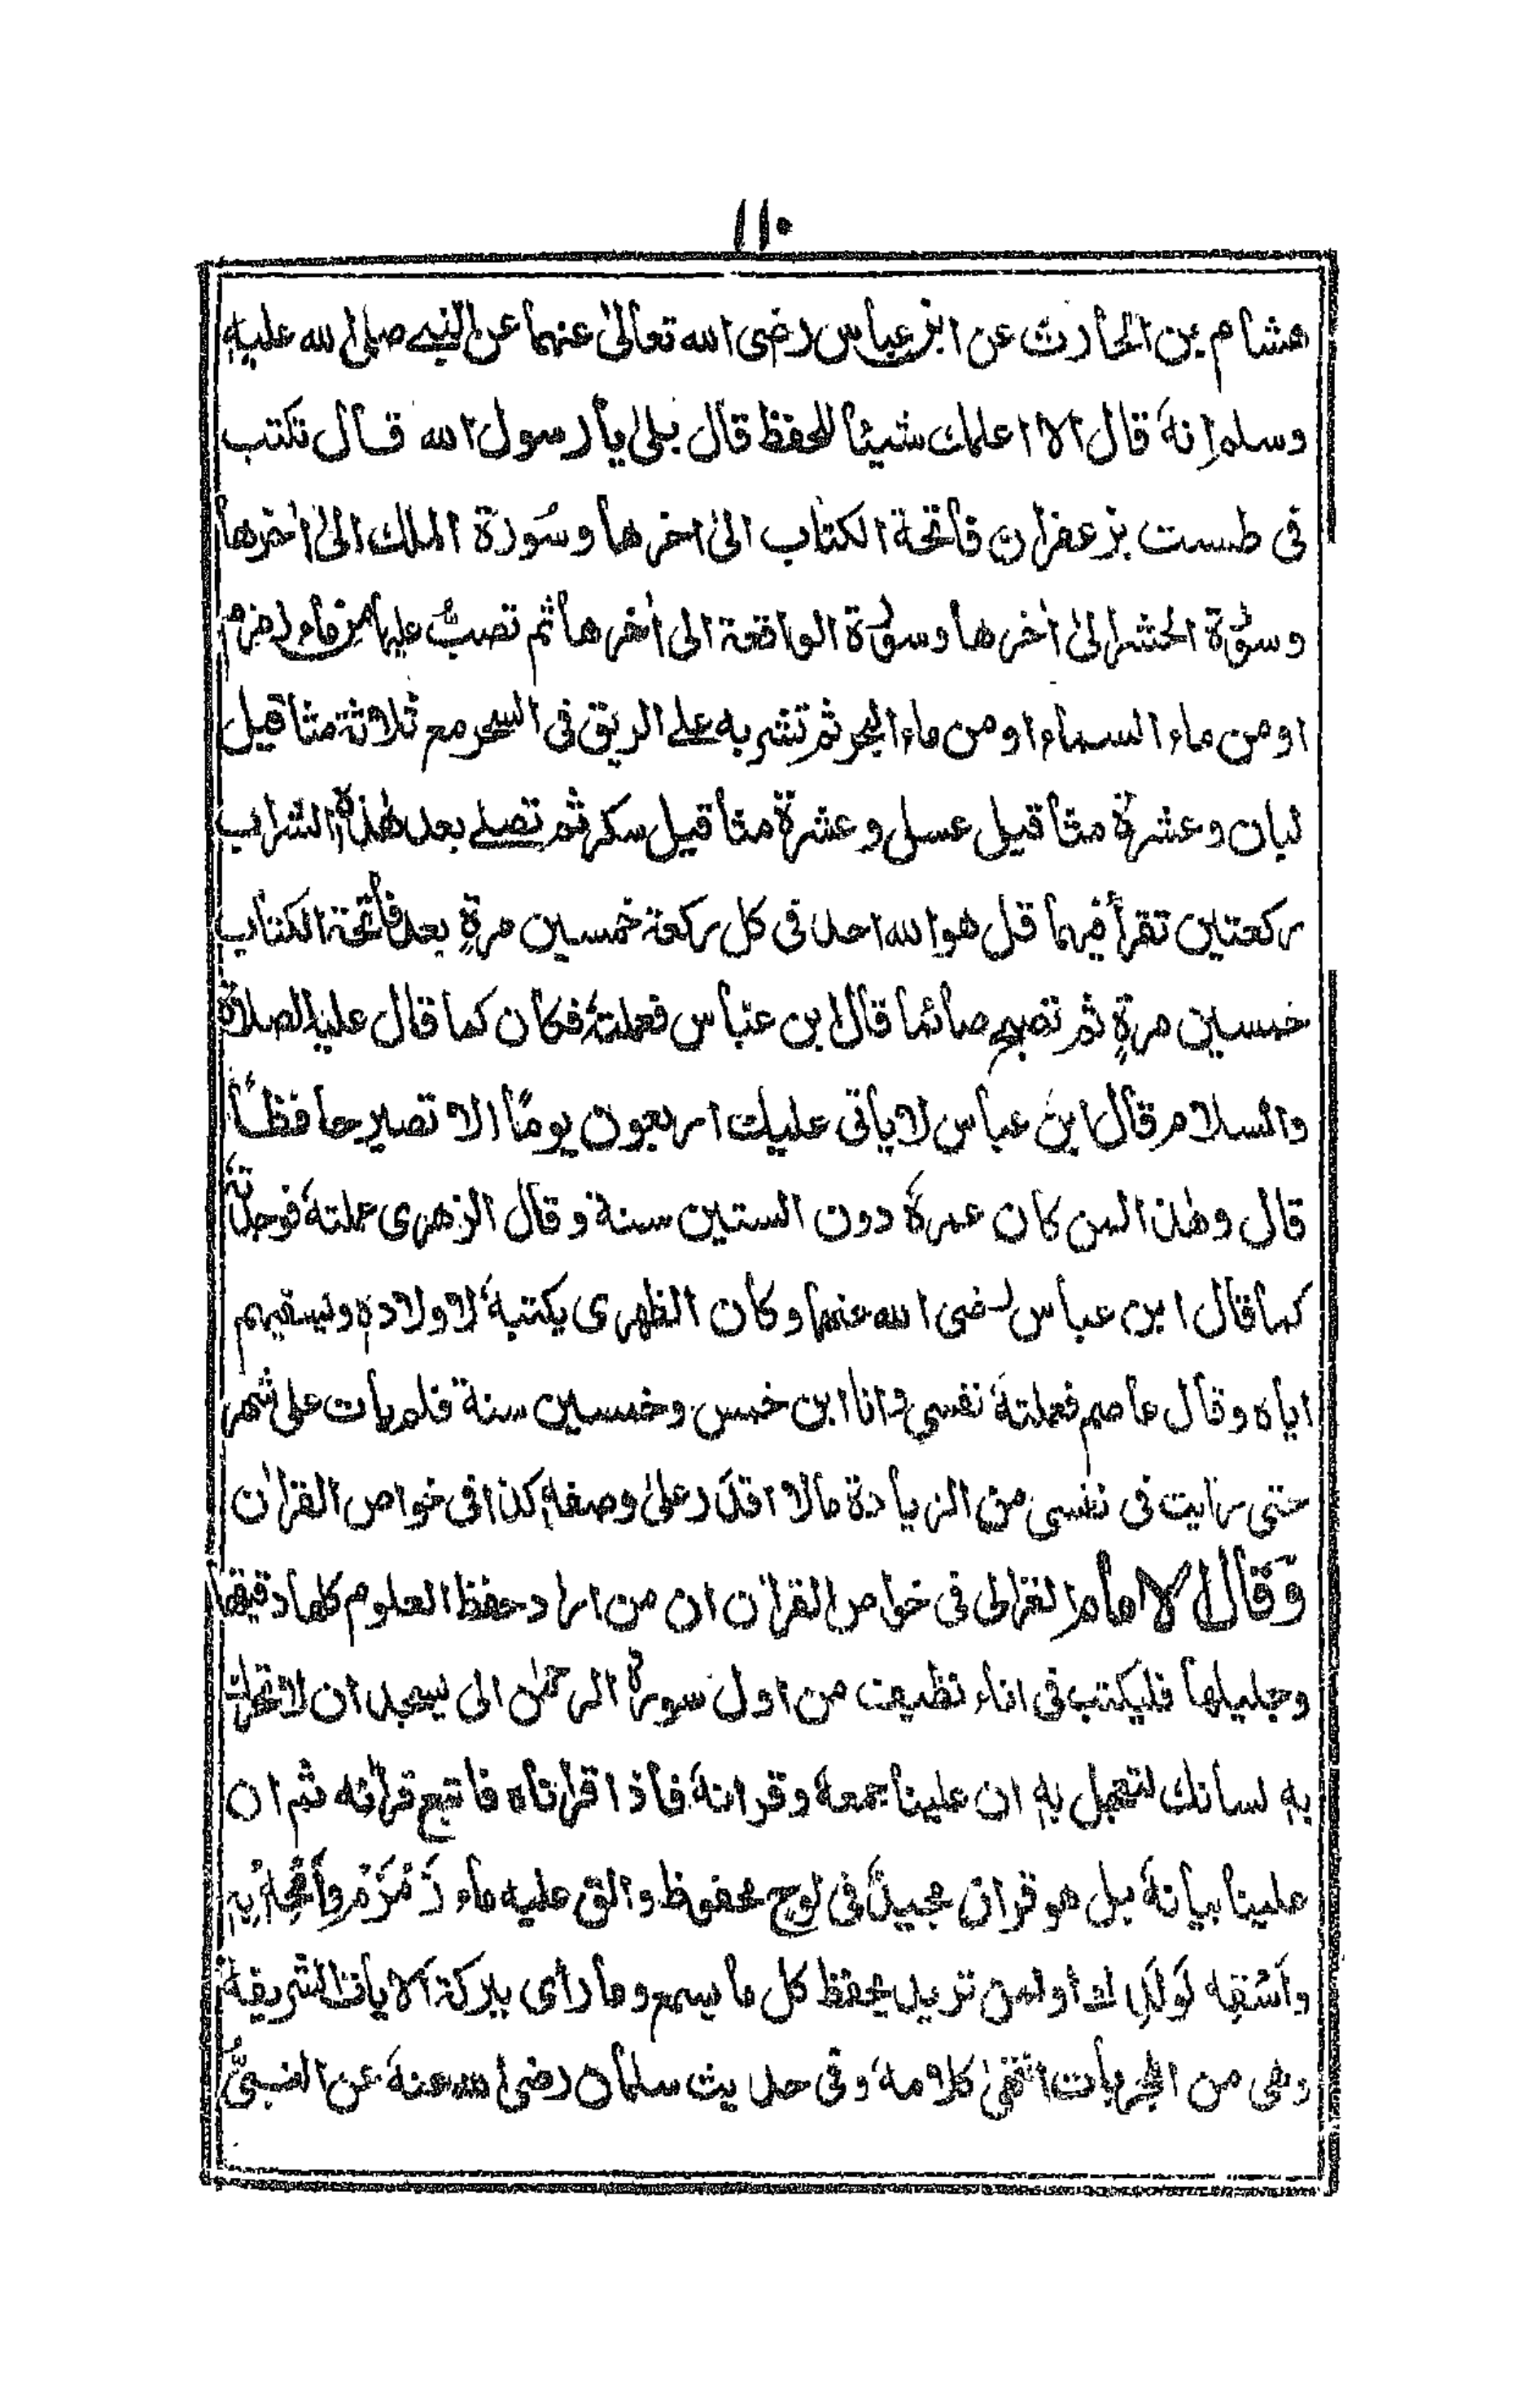 ١١٠
هشام بن الحارث عن ابن عباس رضى الله تعالىٰ عنهما عن النبي صلى الله عليه
وسلم انهٗ قال الا اعلمك شيئا للحفظ قال بلىٰ يا رسول الله قال تكتب
فى طست بزعفران فاتحة الكتاب الىٰ اخرها وسُورة الملك الىٰ اٰخرها
وسورة الحشر الىٰ اٰخرها وسورة الواقعة الى اٰخرها ثم تصبّ عليها من ماء زمزم
او من ماء السماء او من ماء البحر ثم تشربه على الريق فى السحر مع ثلاثة مثاقيل
لبان وعشرة مثاقيل عسل وعشرة مثاقيل سكر ثم تصلى بعد هٰذا الشراب
ركعتين تقرأ فيهما قل هو الله احد فى كل ركعة خمسين مرةٍ بعد فاتحة الكتاب
خمسين مرةٍ ثم تصبح صائما قال ابن عبّاس فعلتهٗ فكان كما قال عليه الصلاة
والسلام قال ابن عباس لا ياتى عليك اربعون يومًا الا تصير حافظًا
قال وهٰذا لمن كان عمرهٗ دون الستين سنة وقال الزهرى عملتهٗ فوجدتهٗ
كما قال ابن عباس رضى الله عنهما وكان الظهرى يكتبهٗ لاولاده ويسقيهم
اياه وقال عاصم فعلتهٗ نفسى وانا ابن خمس وخمسين سنة فلم يات على شهر
حتى رأيت فى نفسى من الزيادة مالا اقدر علىٰ وصفه كذا فى خواص القراٰن
وَقَال الامام الغزالى فى خواص القراٰن ان من اراد حفظ العلوم كلها دقيقها
وجليلها فليكتب فى اناء نظيف من اول سورة الرحمٰن الى يسجدان لا تحرك
به لسانك لتعجل به ان علينا جمعهٗ وقرانهٗ فاذا قراناه فاتبع قرانه ثم ان
علينا بيانهٗ بل هو قران مجيد فى لوح محفوظ والق عليه ماء زَمْزَمْ وَامْحِه بِه
وَاَسْقِه لَوَلَدِك او لمن تريد يحفظ كل ما يسمع وما رأى ببركة الايات الشريفة
وهى من المجربات انتهىٰ كلامهٗ وفى حديث سلمان رضى الله عنهٗ عن النبىّ